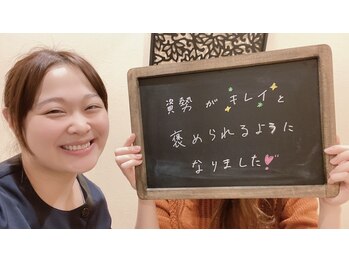 姿勢がキレイと
褒められるように
なりました